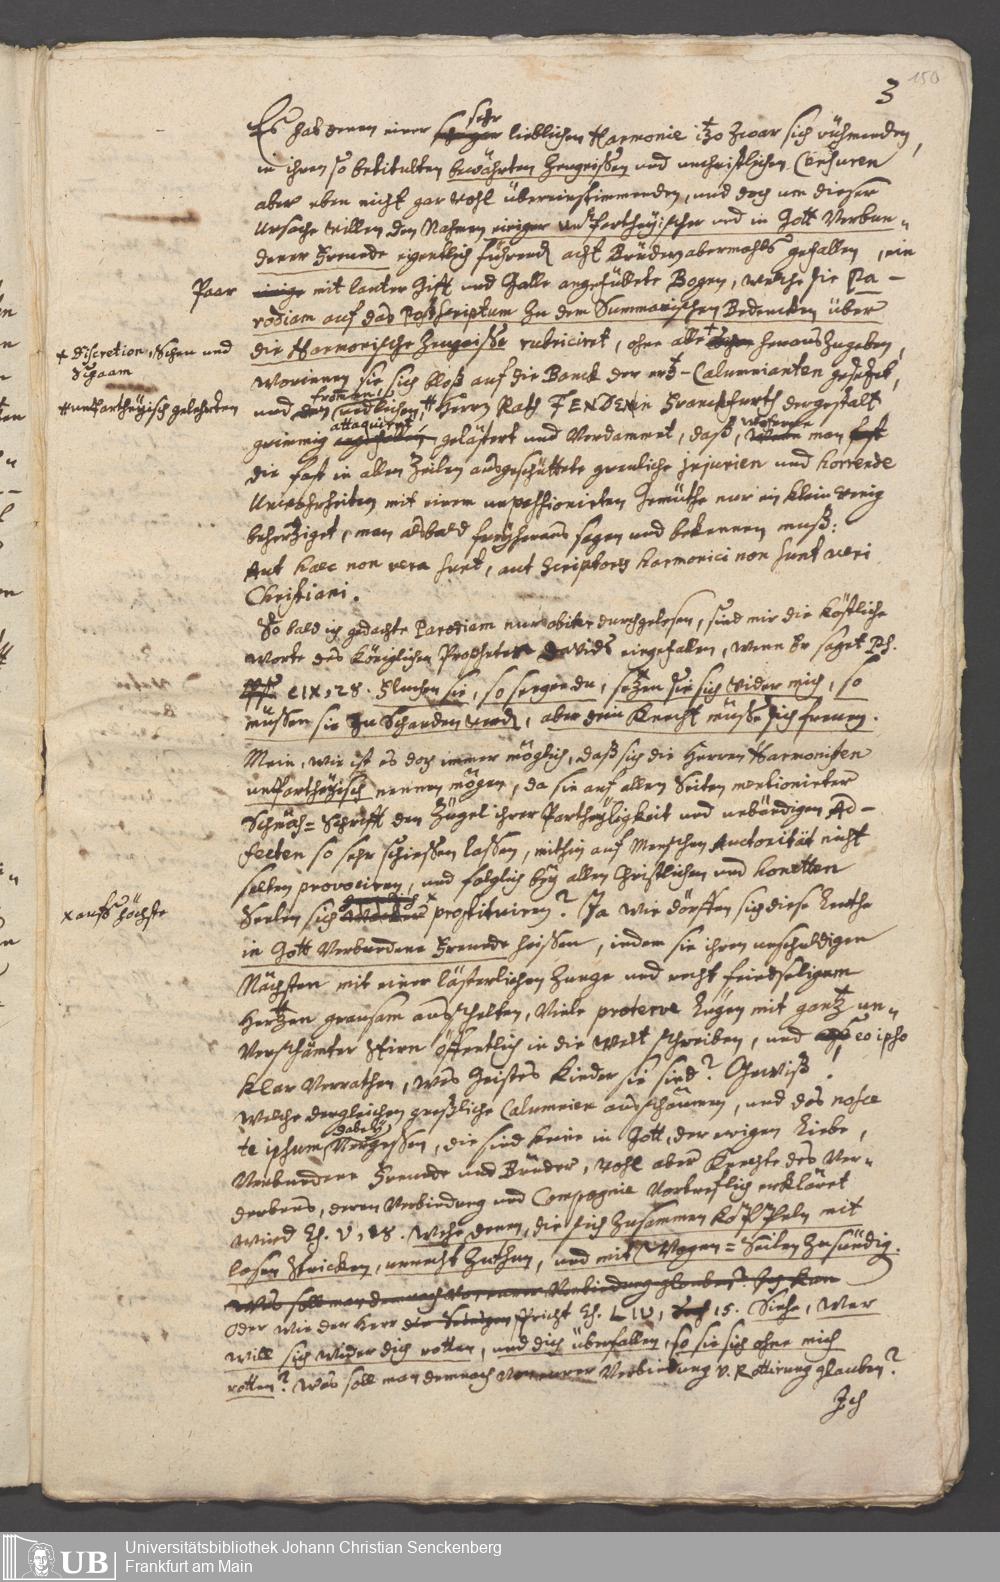 150
3
Es hat denen einer sehr lieblichen Harmonie itzo zwar sich rühmenden,
in ihren so betitulten bewährten Zeugnissen und unchristlichen Censuren
aber eben nicht gar wohl übereinstimmenden, und doch um dieser
Ursache willen den Nahmen einiger unPartheyischer und in Gott Verbun-
dener Freunde eigentlich führend acht Brüdern abermahls gefallen, ein
Paar einige mit lauter Gift und Galle angefüllete Bogen, welche sie Pa-
rodiam auf das Postscriptum zu dem Summarischen Bedencken über
die Harmonische Zeugnisse rubriciret, ohne alle herauszugeben,
x discretion, Scheu und
Schaam
worinnen sie sich bloß auf die Banck der ertz-Calumnianten gesetzet,
# unpartheyisch gelehrten
und den frommen redlichen # Herrn Rath FENDE in Franckfurth dergestalt
grimmig attaquiret, gelästert und Verdammet, daß, woferne man fast
die fast in allen Zeilen ausgeschüttete greuliche injurien und horrende
Unwahrheiten mit einem unpassionirten Gemüthe nur ein klein wenig
behertziget, man alsbald frey heraus sagen und bekennen muß:
Aut haec non vera sunt, aut Scriptores harmonici non sunt veri
Christiani.
So bald ich gedachte Parodiam nur obiter durchgelesen, sind mir die köstliche
Worte des Königlichen Propheten Davids eingefallen, wenn Er saget Ps.
CIX, 28. Fluchen sie, so segne du, setzen sie sich wider mich, so
müssen sie zu Schanden werd, aber dein Knecht müsse sich freuen.
Mein, wie ist es doch immer möglich, daß sich die Herren Harmonisten
unpartheyisch nennen mögen, da sie auf allen Seiten mentionirter
Schmäh-Schrifft den Zügel ihrer Partheyligkeit und unbändigen Af-
fecten so sehr schiessen lassen, mithin auf Menschen Auctorität nicht
selten provociren, und folglich bey allen Christlichen und honetten
x aufs höchste
Seelen sich prostituiren? Ja wie dörffen sich diese Leuthe
in Gott Verbundene Freunde heissen, indem sie ihren unschuldigen
Nächsten mit einer lästerlichen Zunge und recht feindseligem
Hertzen grausam ausschelten, Viele proterve Lügen mit gantz un-
Verschämter Stirn öffentlich in die Welt schreiben, und eo ipso
klar Verrathen, wes Geistes Kinder sie sind? Gewiß,
welche dergleichen greßliche Calumnien ausschäumen, und das nosce
te ipsum dabey Vergessen, die sind keine in Gott, der ewigen Liebe,
Verbundene Freunde und Brüder, wohl aber Knechte des Ver-
derbens, deren Verbindung und Compagnie Vortreflich erkläret
wird Es. V, 18. Wehe denen, die sich zusammen koppeln mit
losen Stricken, unrecht zu thun, und mit Wagen-Seilen zu sündig.
Was soll man demnach von eurer Verbindung glauben? Ich kan
Oder wie der Herr spricht Es. LIV, 15. Siehe, wer
will sich wider dich rotten, und dich überfallen, so sie sich ohne mich
rotten? Was soll man demnach von eurer Verbindung v. Rottirung glauben?
Ich
UB
Universitätsbibliothek Johann Christian Senckenberg
Frankfurt am Main